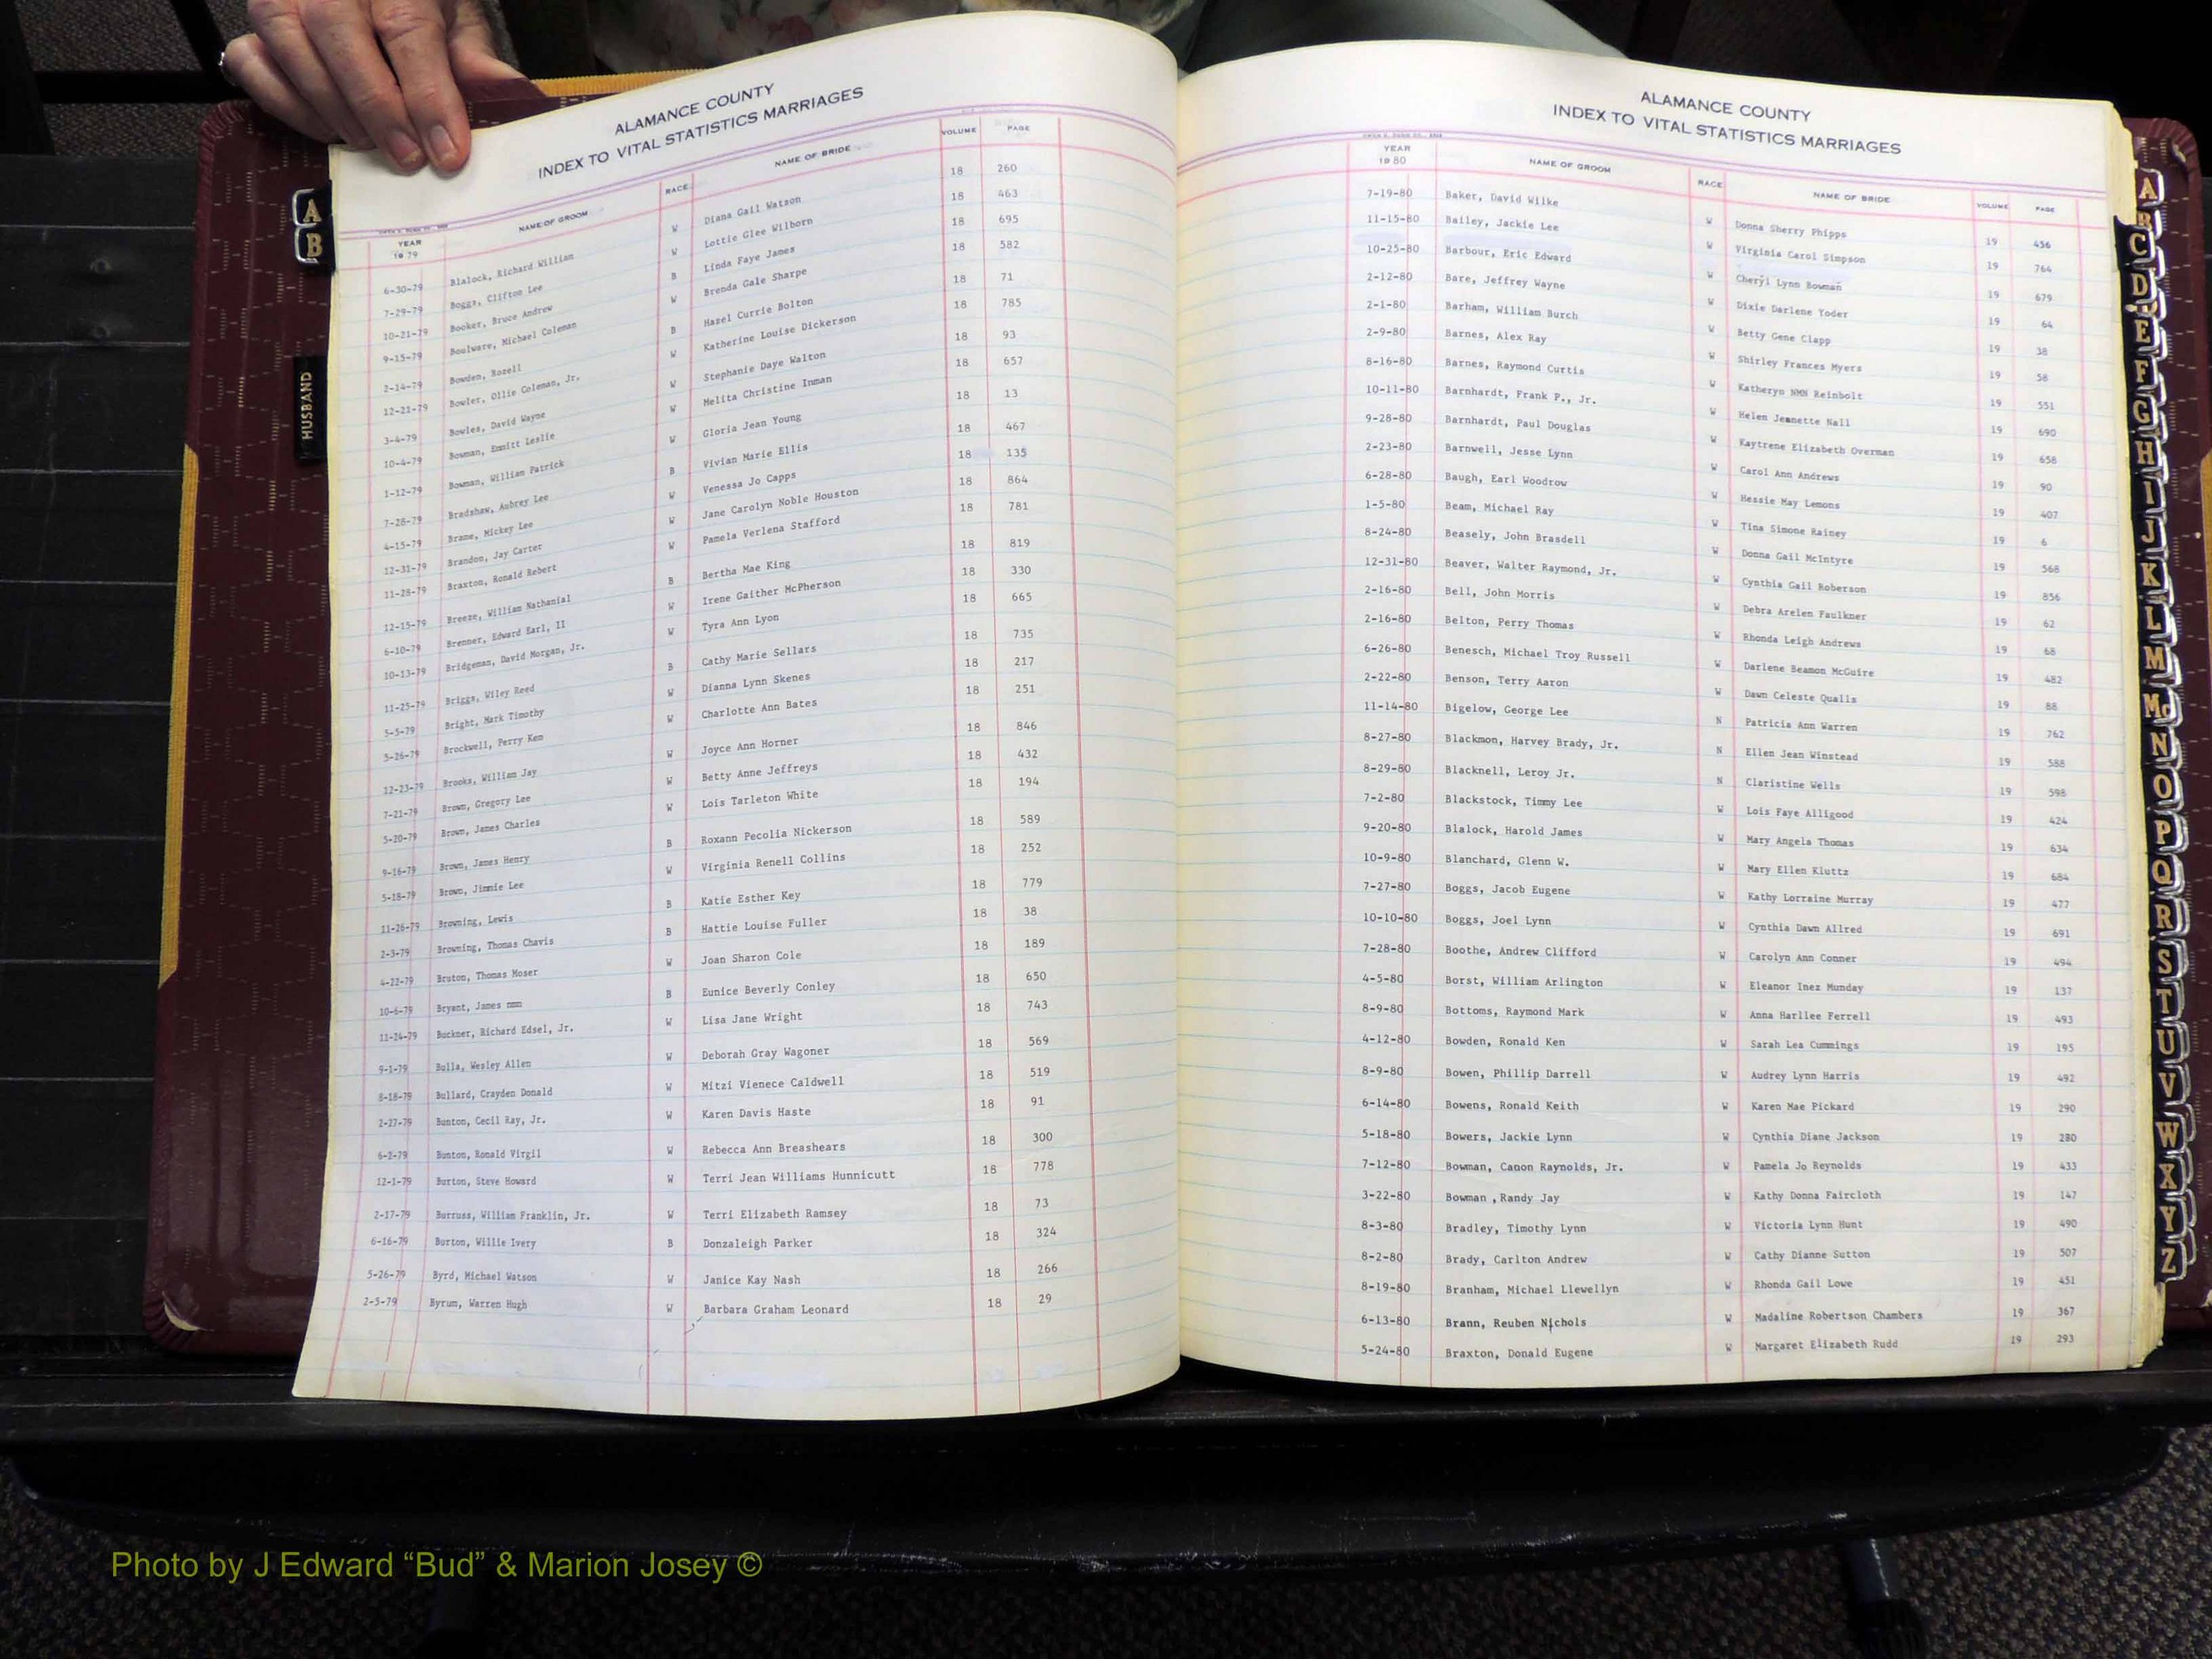 ALAMANCE COUNTY
INDEX TO VITAL STATISTICS MARRIAGES
YEAR NAME OF GROOM RACE NAME OF BRIDE VOLUME PAGE
1979
6-30-79 Blalock, Richard William W Diana Gail Watson 18 260
7-29-79 Boggs, Clifton Lee W Lottie Glee Wilborn 18 463
10-21-79 Booker, Bruce Andrew B Linda Faye James 18 695
9-15-79 Boulware, Michael Coleman W Brenda Gale Sharpe 18 582
2-14-79 Bowden, Rozell B Hazel Currie Bolton 18 71
12-21-79 Bowler, Ollie Coleman, Jr. W Katherine Louise Dickerson 18 785
3-4-79 Bowles, David Wayne W Stephanie Daye Walton 18 93
10-4-79 Bowman, Emmitt Leslie W Melita Christine Inman 18 657
1-12-79 Bowman, William Patrick W Gloria Jean Young 18 13
7-28-79 Bradshaw, Aubrey Lee B Vivian Marie Ellis 18 467
4-15-79 Brame, Mickey Lee W Venessa Jo Capps 18 135
12-31-79 Brandon, Jay Carter W Jane Carolyn Noble Houston 18 864
11-28-79 Braxton, Ronald Rebert W Pamela Verlena Stafford 18 781
12-15-79 Breeze, William Nathanial B Bertha Mae King 18 819
6-10-79 Brenner, Edward Earl, II W Irene Gaither McPherson 18 330
10-13-79 Bridgeman, David Morgan, Jr. W Tyra Ann Lyon 18 665
11-25-79 Briggs, Wiley Reed B Cathy Marie Sellars 18 735
5-5-79 Bright, Mark Timothy W Dianna Lynn Skenes 18 217
5-26-79 Brockwell, Perry Ken W Charlotte Ann Bates 18 251
12-23-79 Brooks, William Jay W Joyce Ann Horner 18 846
7-21-79 Brown, Gregory Lee W Betty Anne Jeffreys 18 432
5-20-79 Brown, James Charles W Lois Tarleton White 18 194
9-16-79 Brown, James Henry B Roxann Pecolia Nickerson 18 589
5-18-79 Brown, Jimmie Lee W Virginia Renell Collins 18 252
11-26-79 Browning, Lewis B Katie Esther Key 18 779
2-3-79 Browning, Thomas Chavis B Hattie Louise Fuller 18 38
4-22-79 Bruton, Thomas Moser W Joan Sharon Cole 18 189
10-6-79 Bryant, James nmn B Eunice Beverly Conley 18 650
11-24-79 Buckner, Richard Edsel, Jr. W Lisa Jane Wright 18 743
9-1-79 Bulla, Wesley Allen W Deborah Gray Wagoner 18 569
8-18-79 Bullard, Crayden Donald W Mitzi Vienece Caldwell 18 519
2-27-79 Bunton, Cecil Ray, Jr. W Karen Davis Haste 18 91
6-2-79 Bunton, Ronald Virgil W Rebecca Ann Breashears 18 300
12-1-79 Burton, Steve Howard W Terri Jean Williams Hunnicutt 18 778
2-17-79 Burruss, William Franklin, Jr. W Terri Elizabeth Ramsey 18 73
6-16-79 Burton, Willie Ivery B Donzaleigh Parker 18 324
5-26-79 Byrd, Michael Watson W Janice Kay Nash 18 266
2-5-79 Byrum, Warren Hugh W Barbara Graham Leonard 18 29
ALAMANCE COUNTY
INDEX TO VITAL STATISTICS MARRIAGES
YEAR NAME OF GROOM RACE NAME OF BRIDE VOLUME PAGE
1980
7-19-80 Baker, David Wilke W Donna Sherry Phipps 19 456
11-15-80 Bailey, Jackie Lee W Virginia Carol Simpson 19 764
10-25-80 Barbour, Eric Edward W Cheryl Lynn Bowman 19 679
2-12-80 Bare, Jeffrey Wayne W Dixie Darlene Yoder 19 64
2-1-80 Barham, William Burch W Betty Gene Clapp 19 38
2-9-80 Barnes, Alex Ray W Shirley Frances Myers 19 58
8-16-80 Barnes, Raymond Curtis W Katheryn NMN Reinbolt 19 551
10-11-80 Barnhardt, Frank P., Jr. W Helen Jeanette Nall 19 690
9-28-80 Barnhardt, Paul Douglas W Kaytrene Elizabeth Overman 19 658
2-23-80 Barnwell, Jesse Lynn W Carol Ann Andrews 19 90
6-28-80 Baugh, Earl Woodrow W Hessie May Lemons 19 407
1-5-80 Beam, Michael Ray W Tina Simone Rainey 19 6
8-24-80 Beasely, John Brasdell W Donna Gail McIntyre 19 568
12-31-80 Beaver, Walter Raymond, Jr. W Cynthia Gail Roberson 19 856
2-16-80 Bell, John Morris W Debra Arelen Faulkner 19 62
2-16-80 Belton, Perry Thomas W Rhonda Leigh Andrews 19 68
6-26-80 Benesch, Michael Troy Russell W Darlene Beamon McGuire 19 482
2-22-80 Benson, Terry Aaron W Dawn Celeste Qualls 19 88
11-14-80 Bigelow, George Lee N Patricia Ann Warren 19 762
8-27-80 Blackmon, Harvey Brady, Jr. N Ellen Jean Winstead 19 588
8-29-80 Blacknell, Leroy Jr. N Claristine Wells 19 598
7-2-80 Blackstock, Timmy Lee W Lois Faye Alligood 19 424
9-20-80 Blalock, Harold James W Mary Angela Thomas 19 634
10-9-80 Blanchard, Glenn W. W Mary Ellen Kluttz 19 684
7-27-80 Boggs, Jacob Eugene W Kathy Lorraine Murray 19 477
10-10-80 Boggs, Joel Lynn W Cynthia Dawn Allred 19 691
7-28-80 Boothe, Andrew Clifford W Carolyn Ann Conner 19 494
4-5-80 Borst, William Arlington W Eleanor Inez Munday 19 137
8-9-80 Bottoms, Raymond Mark W Anna Harllee Ferrell 19 493
4-12-80 Bowden, Ronald Ken W Sarah Lea Cummings 19 195
8-9-80 Bowen, Phillip Darrell W Audrey Lynn Harris 19 492
6-14-80 Bowens, Ronald Keith W Karen Mae Pickard 19 290
5-18-80 Bowers, Jackie Lynn W Cynthia Diane Jackson 19 280
7-12-80 Bowman, Canon Raynolds, Jr. W Pamela Jo Reynolds 19 433
3-22-80 Bowman ,Randy Jay W Kathy Donna Faircloth 19 147
8-3-80 Bradley, Timothy Lynn W Victoria Lynn Hunt 19 490
8-2-80 Brady, Carlton Andrew W Cathy Dianne Sutton 19 507
8-19-80 Branham, Michael Llewellyn W Rhonda Gail Lowe 19 451
6-13-80 Brann, Reuben Nichols W Madaline Robertson Chambers 19 367
5-24-80 Braxton, Donald Eugene W Margaret Elizabeth Rudd 19 293
A
B
HUSBAND
A
B
C
D
E
F
G
H
I
J
K
L
M
Mc
N
O
P
Q
R
S
T
U
V
W
X
Y
Z
Photo by J Edward “Bud” & Marion Josey ©